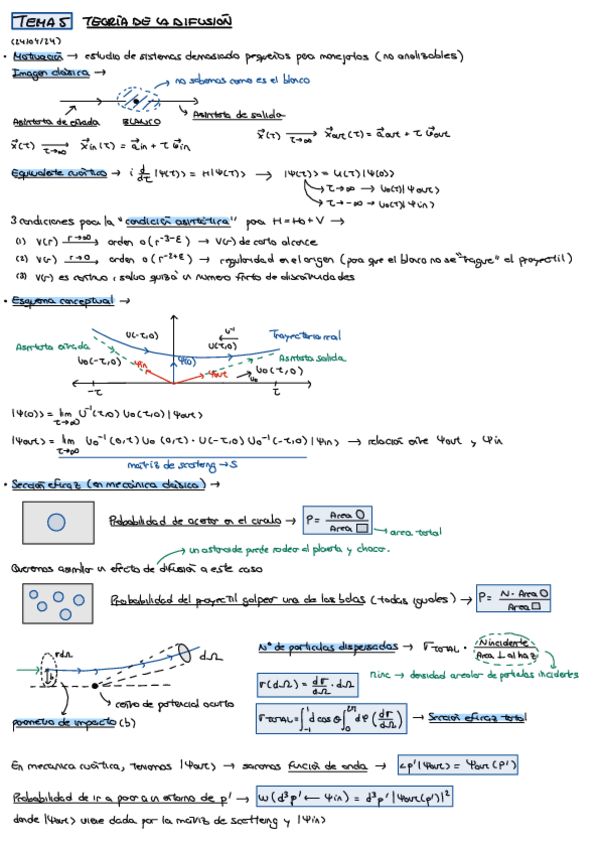 TEMA 5 TEORÍA DE LA DIFUSIÓN
(24/04/24)
• Motivación → estudio de sistemas demasiado pequeños para manejarlos (no analizables)
Imagen clásica →
no sabemos como es el blanco
Asíntota de entrada BLANCO Asíntota de salida
x⃗(τ) →_{τ→∞} x⃗in(τ) = a⃗in + τ v⃗in
x⃗(τ) →_{τ→∞} x⃗out(τ) = a⃗out + τ v⃗out
Equivalente cuántico → i d/dτ |Ψ(τ)> = H|Ψ(τ)> → |Ψ(τ)> = U(τ)|Ψ(0)>
τ→∞ → U0(τ)|Ψout>
τ→-∞ → U0(τ)|Ψin>
3 condiciones para la "condición asintótica" para H = H0 + V →
(1) V(r) →_{r→∞} orden o(r^{-3-ε}) → V(r) de corto alcance
(2) V(r) →_{r→0} orden o(r^{-2+ε}) → regularidad en el origen (para que el blanco no se "trague" el proyectil)
(3) V(r) es continuo, salvo quizá un número finito de discontinuidades
• Esquema conceptual →
U(-τ,0) U^{-1} U(τ,0) Trayectoria real
Asíntota entrada U0(-τ,0) Ψin Ψ(0) Ψout U0(τ,0) Asíntota salida
U0
-τ τ
|Ψ(0)> = lim_{τ→∞} U^{-1}(τ,0) U0(τ,0)|Ψout>
|Ψout> = lim_{τ→∞} U0^{-1}(0,τ) U0(0,τ) · U(-τ,0) U0^{-1}(-τ,0)|Ψin> → relación entre Ψout y Ψin
matriz de scattering → S
• Sección eficaz (en mecánica clásica) →
Probabilidad de acertar en el círculo → P = Área ○ / Área □ → área total
un asteroide puede rodear el planeta y chocar.
Queremos asimilar un efecto de difusión a este caso
Probabilidad del proyectil golpear una de las bolas (todas iguales) → P = N · Área ○ / Área □
rdΩ dΩ
b
centro de potencial oculto
parámetro de impacto (b)
Nº de partículas dispersadas → σTOTAL · Nincidente / Área ⊥ al haz
ninc → densidad areolar de partículas incidentes
σ(dΩ) = dσ/dΩ · dΩ
σTOTAL = ∫_{-1}^{1} d cosθ ∫_0^{2π} dφ (dσ/dΩ) → Sección eficaz total
En mecánica cuántica, tenemos |Ψout> → sacamos función de onda → <p'|Ψout> = Ψout(p')
Probabilidad de ir a parar a un entorno de p' → w(d³p' ← Ψin) = d³p' |Ψout(p')|²
donde |Ψout> viene dada por la matriz de scattering y |Ψin>